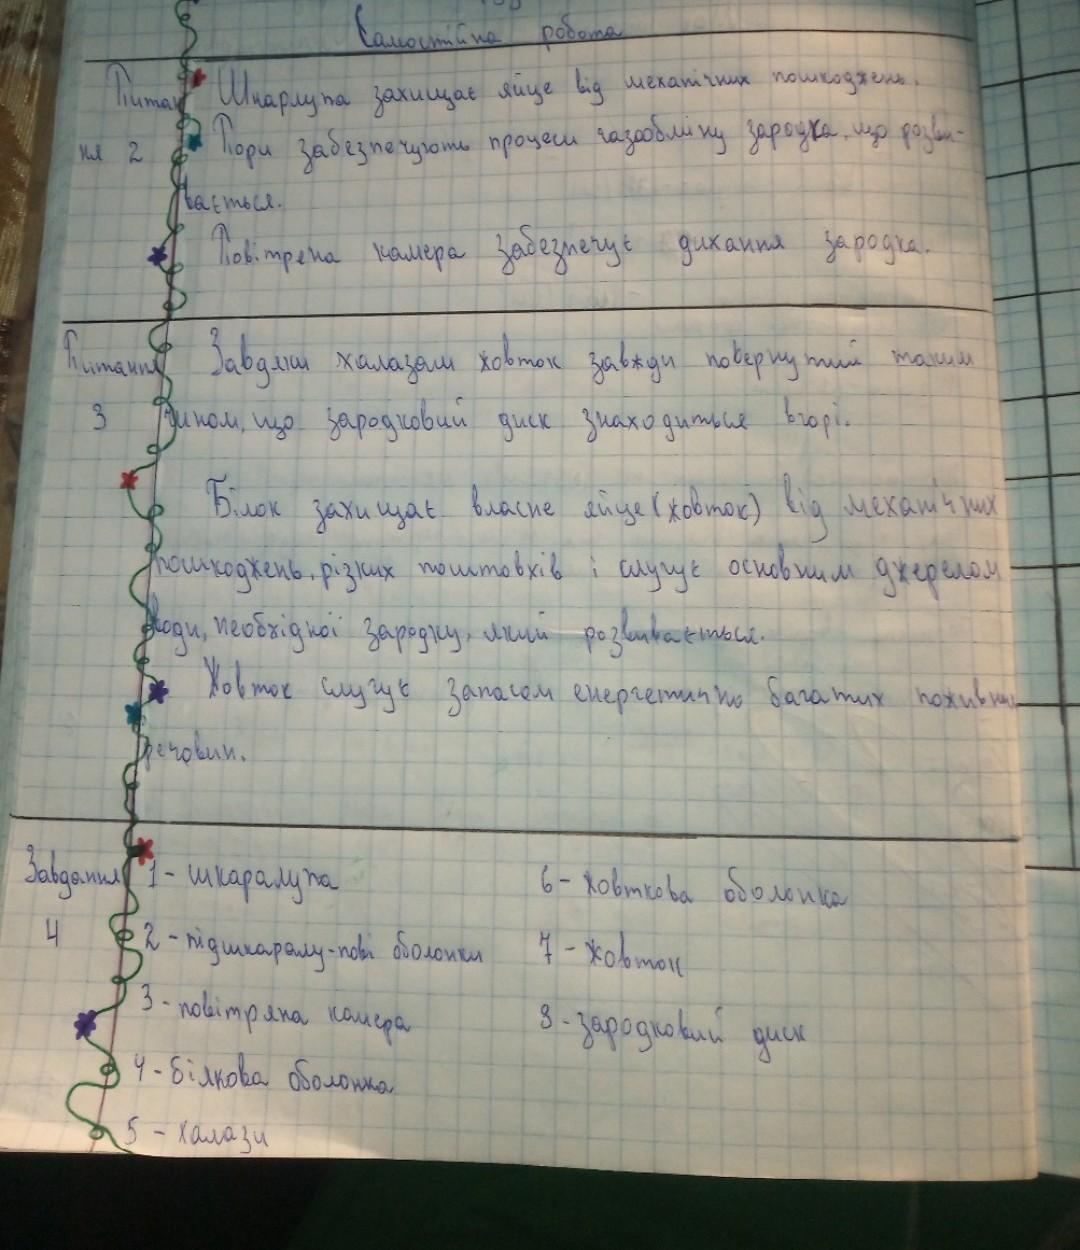 Самостійна робота
Питан Шкарлупа захищає яйце від механічних пошкоджень.
ня 2 Пори забезпечують процеси газообліну зародка, що розви-
вається.
Повітряна камера забезпечує дихання зародка.
Питання Завдяки халазам жовток завжди повернутий таким
3 чином, що зародковий диск знаходиться вгорі.
Білок захищає власне яйце (жовток) від механічних
пошкоджень, різких поштовхів і слугує основним джерелом
води, необхідної зародку, який розвивається.
Жовток слугує запасом енергетично багатих поживних
речовин.
Завдання 1 - шкаралупа 6 - жовткова оболонка
4 2 - підшкаралу-пові оболонки 7 - жовток
3 - повітряна камера 8 - зародковий диск
4 - білкова оболонка
5 - халази